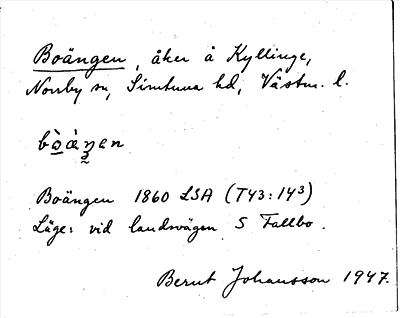 Boängen, åker å Kyllinge,
Norrby sn, Simtuna hd, Västm. l.
bò̲àŋen
Boängen 1860 LSA (T43:14³)
Läge: vid landsvägen S Fallbo.
Bernt Johansson 1947.